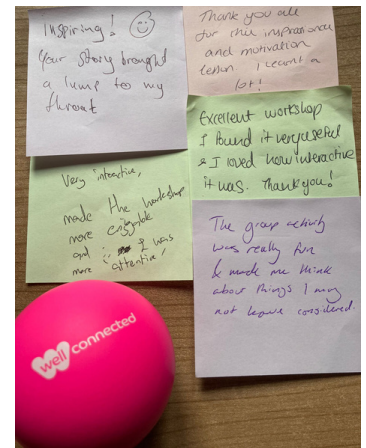 Inspiring! ☺
Your story brought
a lump to my
throat
Thank you all
for this inspirational
and motivation
lesson I learnt a
lot!
Excellent workshop
I found it very useful
& I loved how interactive
it was. Thank you!
Very interactive,
made the workshop
more enjoyable
and I was
more attentive!
The group activity
was really fun
& made me think
about things I may
not have considered.
well connected